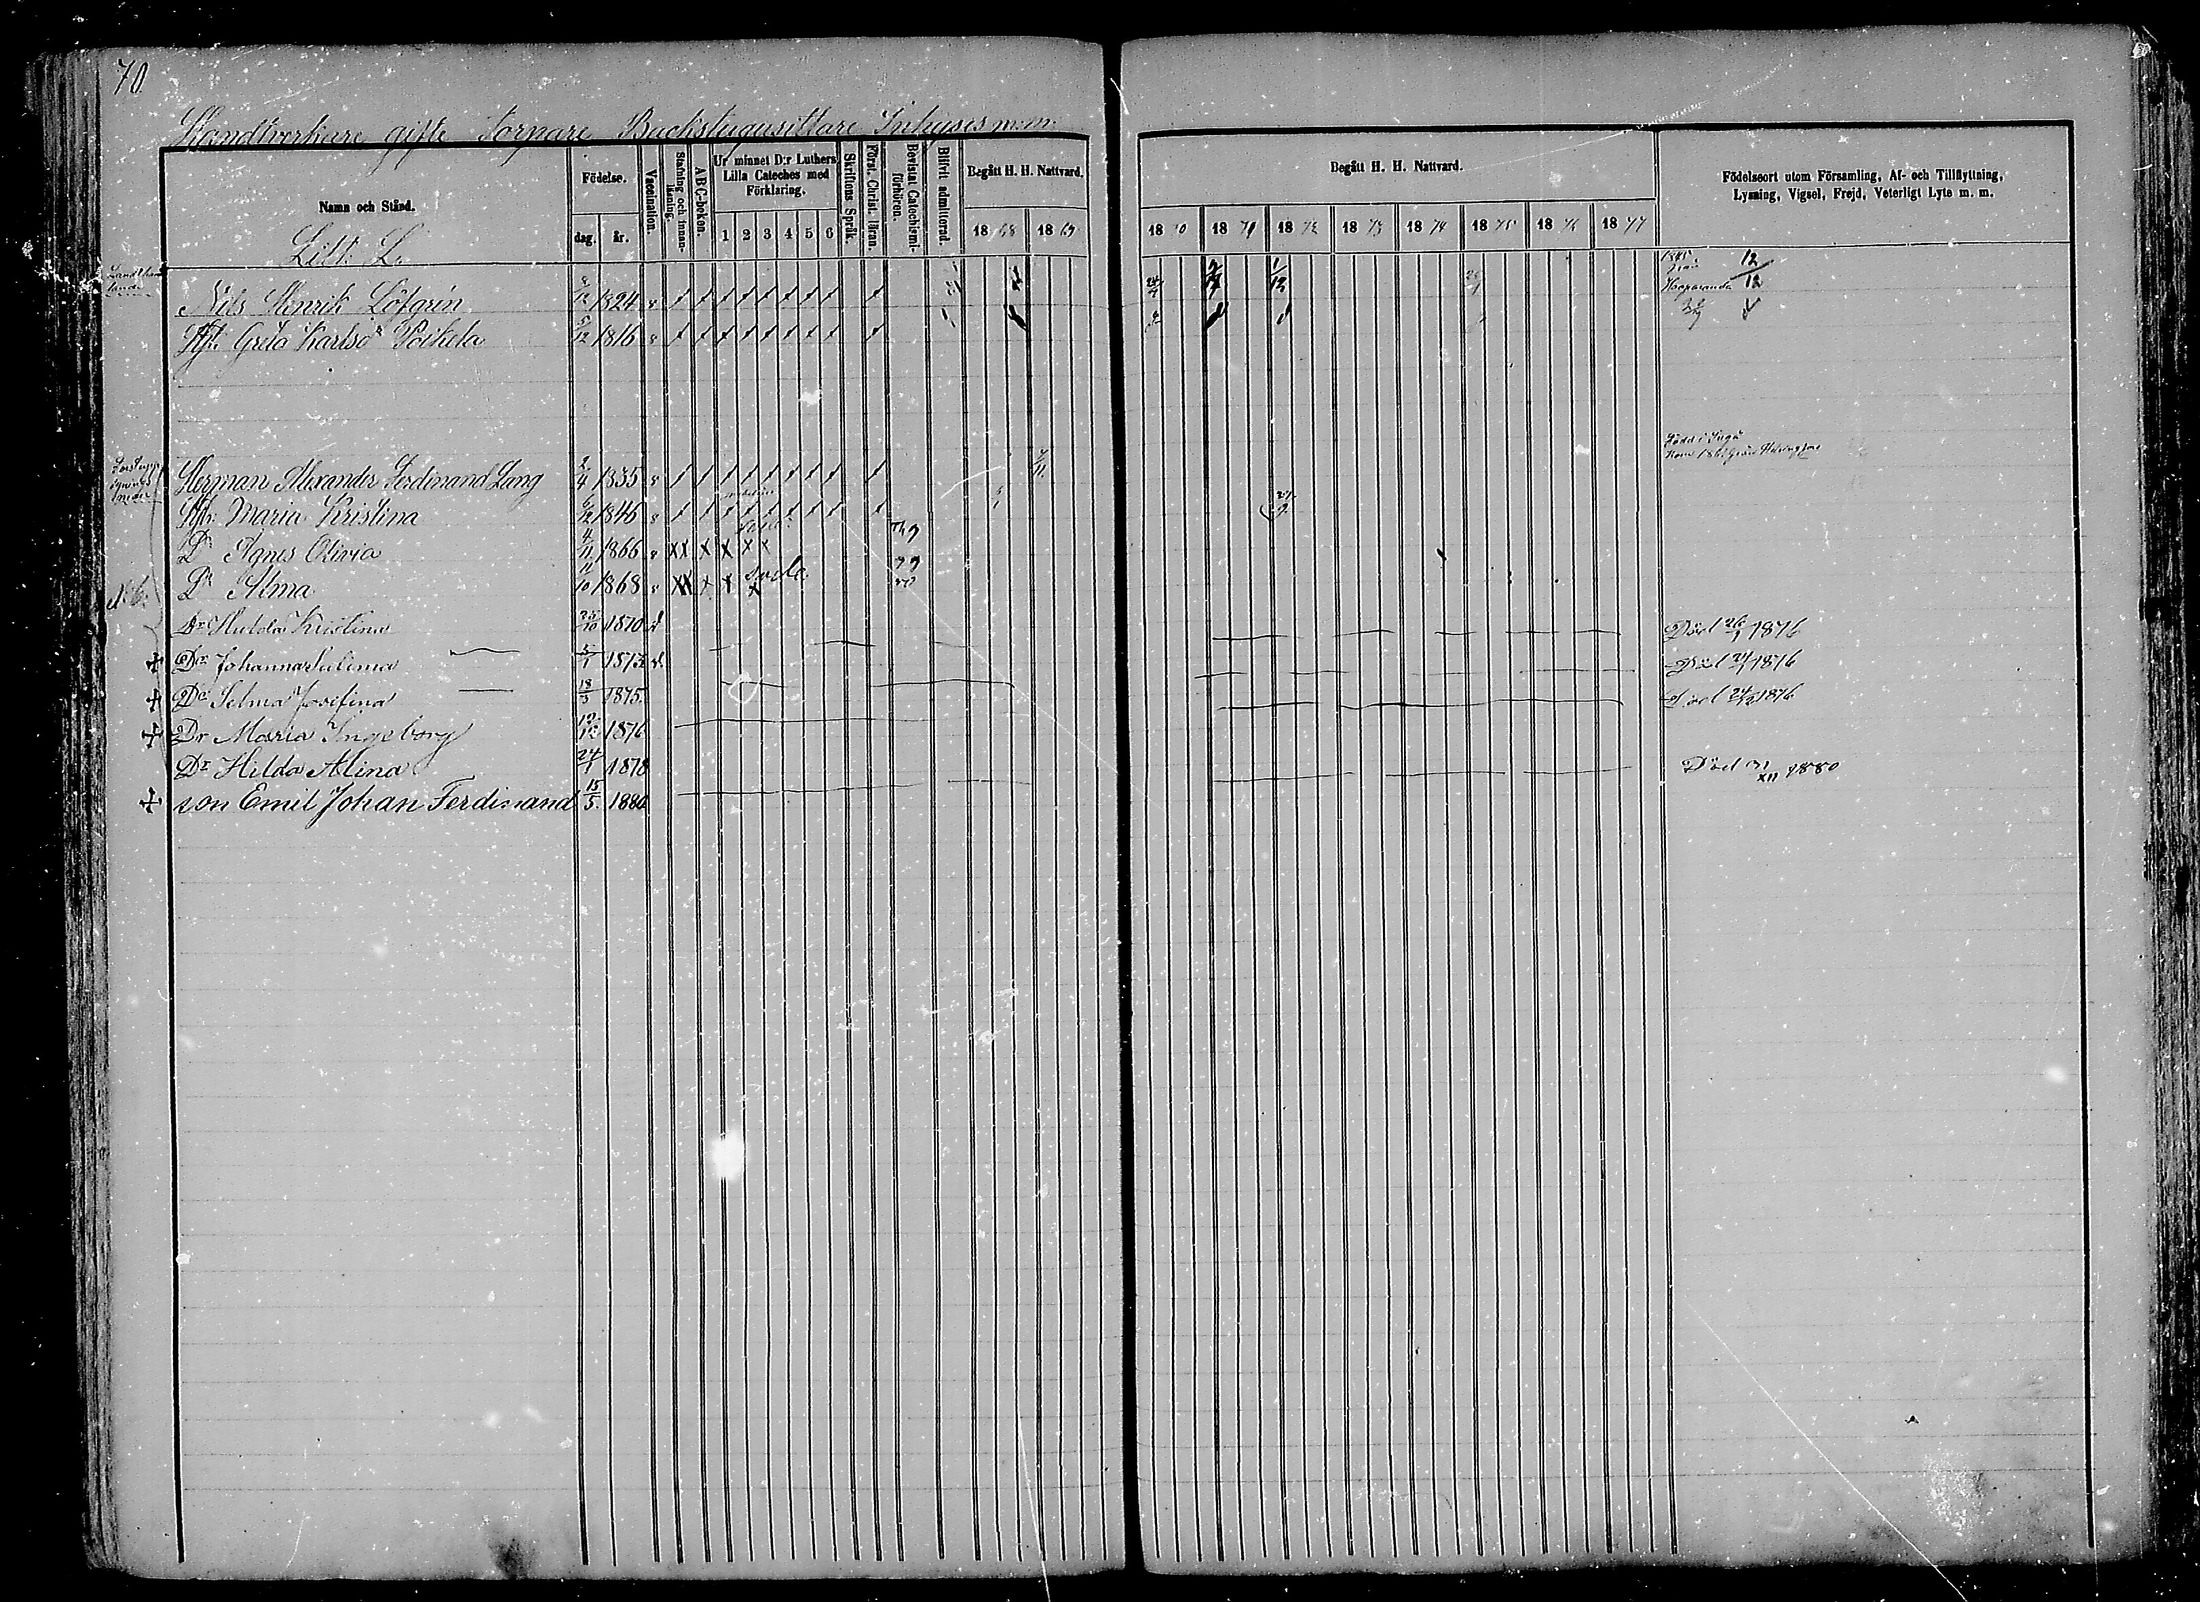 70
Handtverkare gifte Torpare Backstugusittare Inhyses m.m.
Namn och Stånd.
Födelse.
dag. år.
Vaccination.
Stafning och innanläsning.
A B C-boken.
Ur minnet D:r Luthers Lilla Cateches med Förklaring.
1 2 3 4 5 6
Skriftens Språk.
Först. Christ. läran.
Bevistat Catechismiförhören.
Blifvit admitterad.
Begått H. H. Nattvard.
18 68 18 69
Begått H. H. Nattvard.
18 70 18 71 18 72 18 73 18 74 18 75 18 76 18 77
Födelseort utom Församling, Af- och Tillflyttning, Lysning, Vigsel, Frejd, Veterligt Lyte m. m.
Litt. L.
Nils Henrik Löfgrén 1824 v Haparanda 12/12
Hst. Greta Karlsdr Poikela 5/12 1816 v
Herman Alexander Ferdinand Lang 2/4 1835 v Född i Ingå
Hst. Maria Kristina 6/12 1846 v
Dr Agnes Olivia 4/11 1866 v
Dr Alma 11/10 1868 v
Dr Hulda Kristina 25/10 1870 Död 26/1 1876
Dr Johanna 1873 v. Död 24/1 1876
Dr Selma Josefina 18/3 1875 Död 24/2 1876
Dr Maria Ingeborg 12/12 1876
Dr Hilda Alina 24/1 1878 Död 31/XII 1880
son Emil Johan Ferdinand 15/5 1880